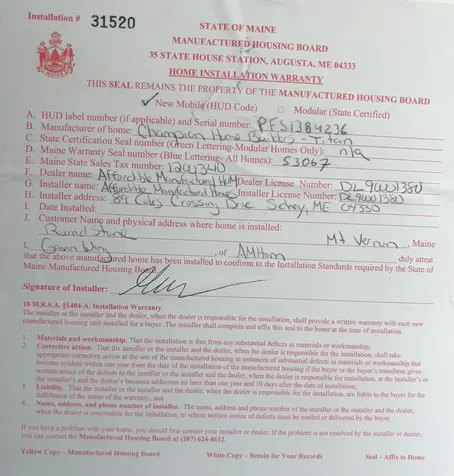 Installation # 31520
STATE OF MAINE
MANUFACTURED HOUSING BOARD
35 STATE HOUSE STATION, AUGUSTA, ME 04333
HOME INSTALLATION WARRANTY
THIS SEAL REMAINS THE PROPERTY OF THE MANUFACTURED HOUSING BOARD
✓ New Mobile (HUD Code) □ Modular (State Certified)
A. HUD label number (if applicable) and Serial number: PFS1384236
B. Manufacturer of home: Champion Home Builders - Titan
C. State Certification Seal number (Green Lettering-Modular Homes Only): n/a
D. Maine Warranty Seal number (Blue Lettering- All Homes): 53067
E. Maine State Sales Tax number:
F. Dealer name: Affordable Manufactured HOM Dealer License Number: DL9001380
G. Installer name: Affordable Manufactured Homes Installer License Number: DL9001380
H. Installer address: 89 Coles Crossing Drive Sidney, ME 04330
I. Date Installed:
J. Customer Name and physical address where home is installed:
Stone Mt Vernon, Maine
I, Gavin, of duly attest
that the above manufactured home has been installed to conform to the Installation Standards required by the State of
Maine Manufactured Housing Board.
Signature of Installer:
10 M.R.S.A. §1404-A. Installation Warranty
The installer or the installer and the dealer, when the dealer is responsible for the installation, shall provide a written warranty with each new
manufactured housing unit installed for a buyer. The installer shall complete and affix this seal to the home at the time of installation.
1. Materials and workmanship. That the installation is free from any substantial defects in materials or workmanship;
2. Corrective action. That the installer or the installer and the dealer, when the dealer is responsible for the installation, shall take
appropriate corrective action at the site of the manufactured housing in instances of substantial defects in materials or workmanship that
become evident within one year from the date of the installation of the manufactured housing if the buyer or the buyer's transferee gives
written notice of the defects to the installer or the installer and the dealer, when the dealer is responsible for installation, at the installer's or
the installer's and the dealer's business addresses no later than one year and 10 days after the date of installation;
3. Liability. That the installer or the installer and the dealer, when the dealer is responsible for the installation, are liable to the buyer for the
fulfillment of the terms of the warranty; and
4. Name, address, and phone number of installer. The name, address and phone number of the installer or the installer and the dealer,
when the dealer is responsible for the installation, to whom written notice of defects must be mailed or delivered by the buyer.
If you have a problem with your home, you should first contact your installer or dealer. If the problem is not resolved by the installer or dealer,
you can contact the Manufactured Housing Board at (207) 624-8612.
Yellow Copy – Manufactured Housing Board White Copy – Retain for Your Records Seal – Affix to Home